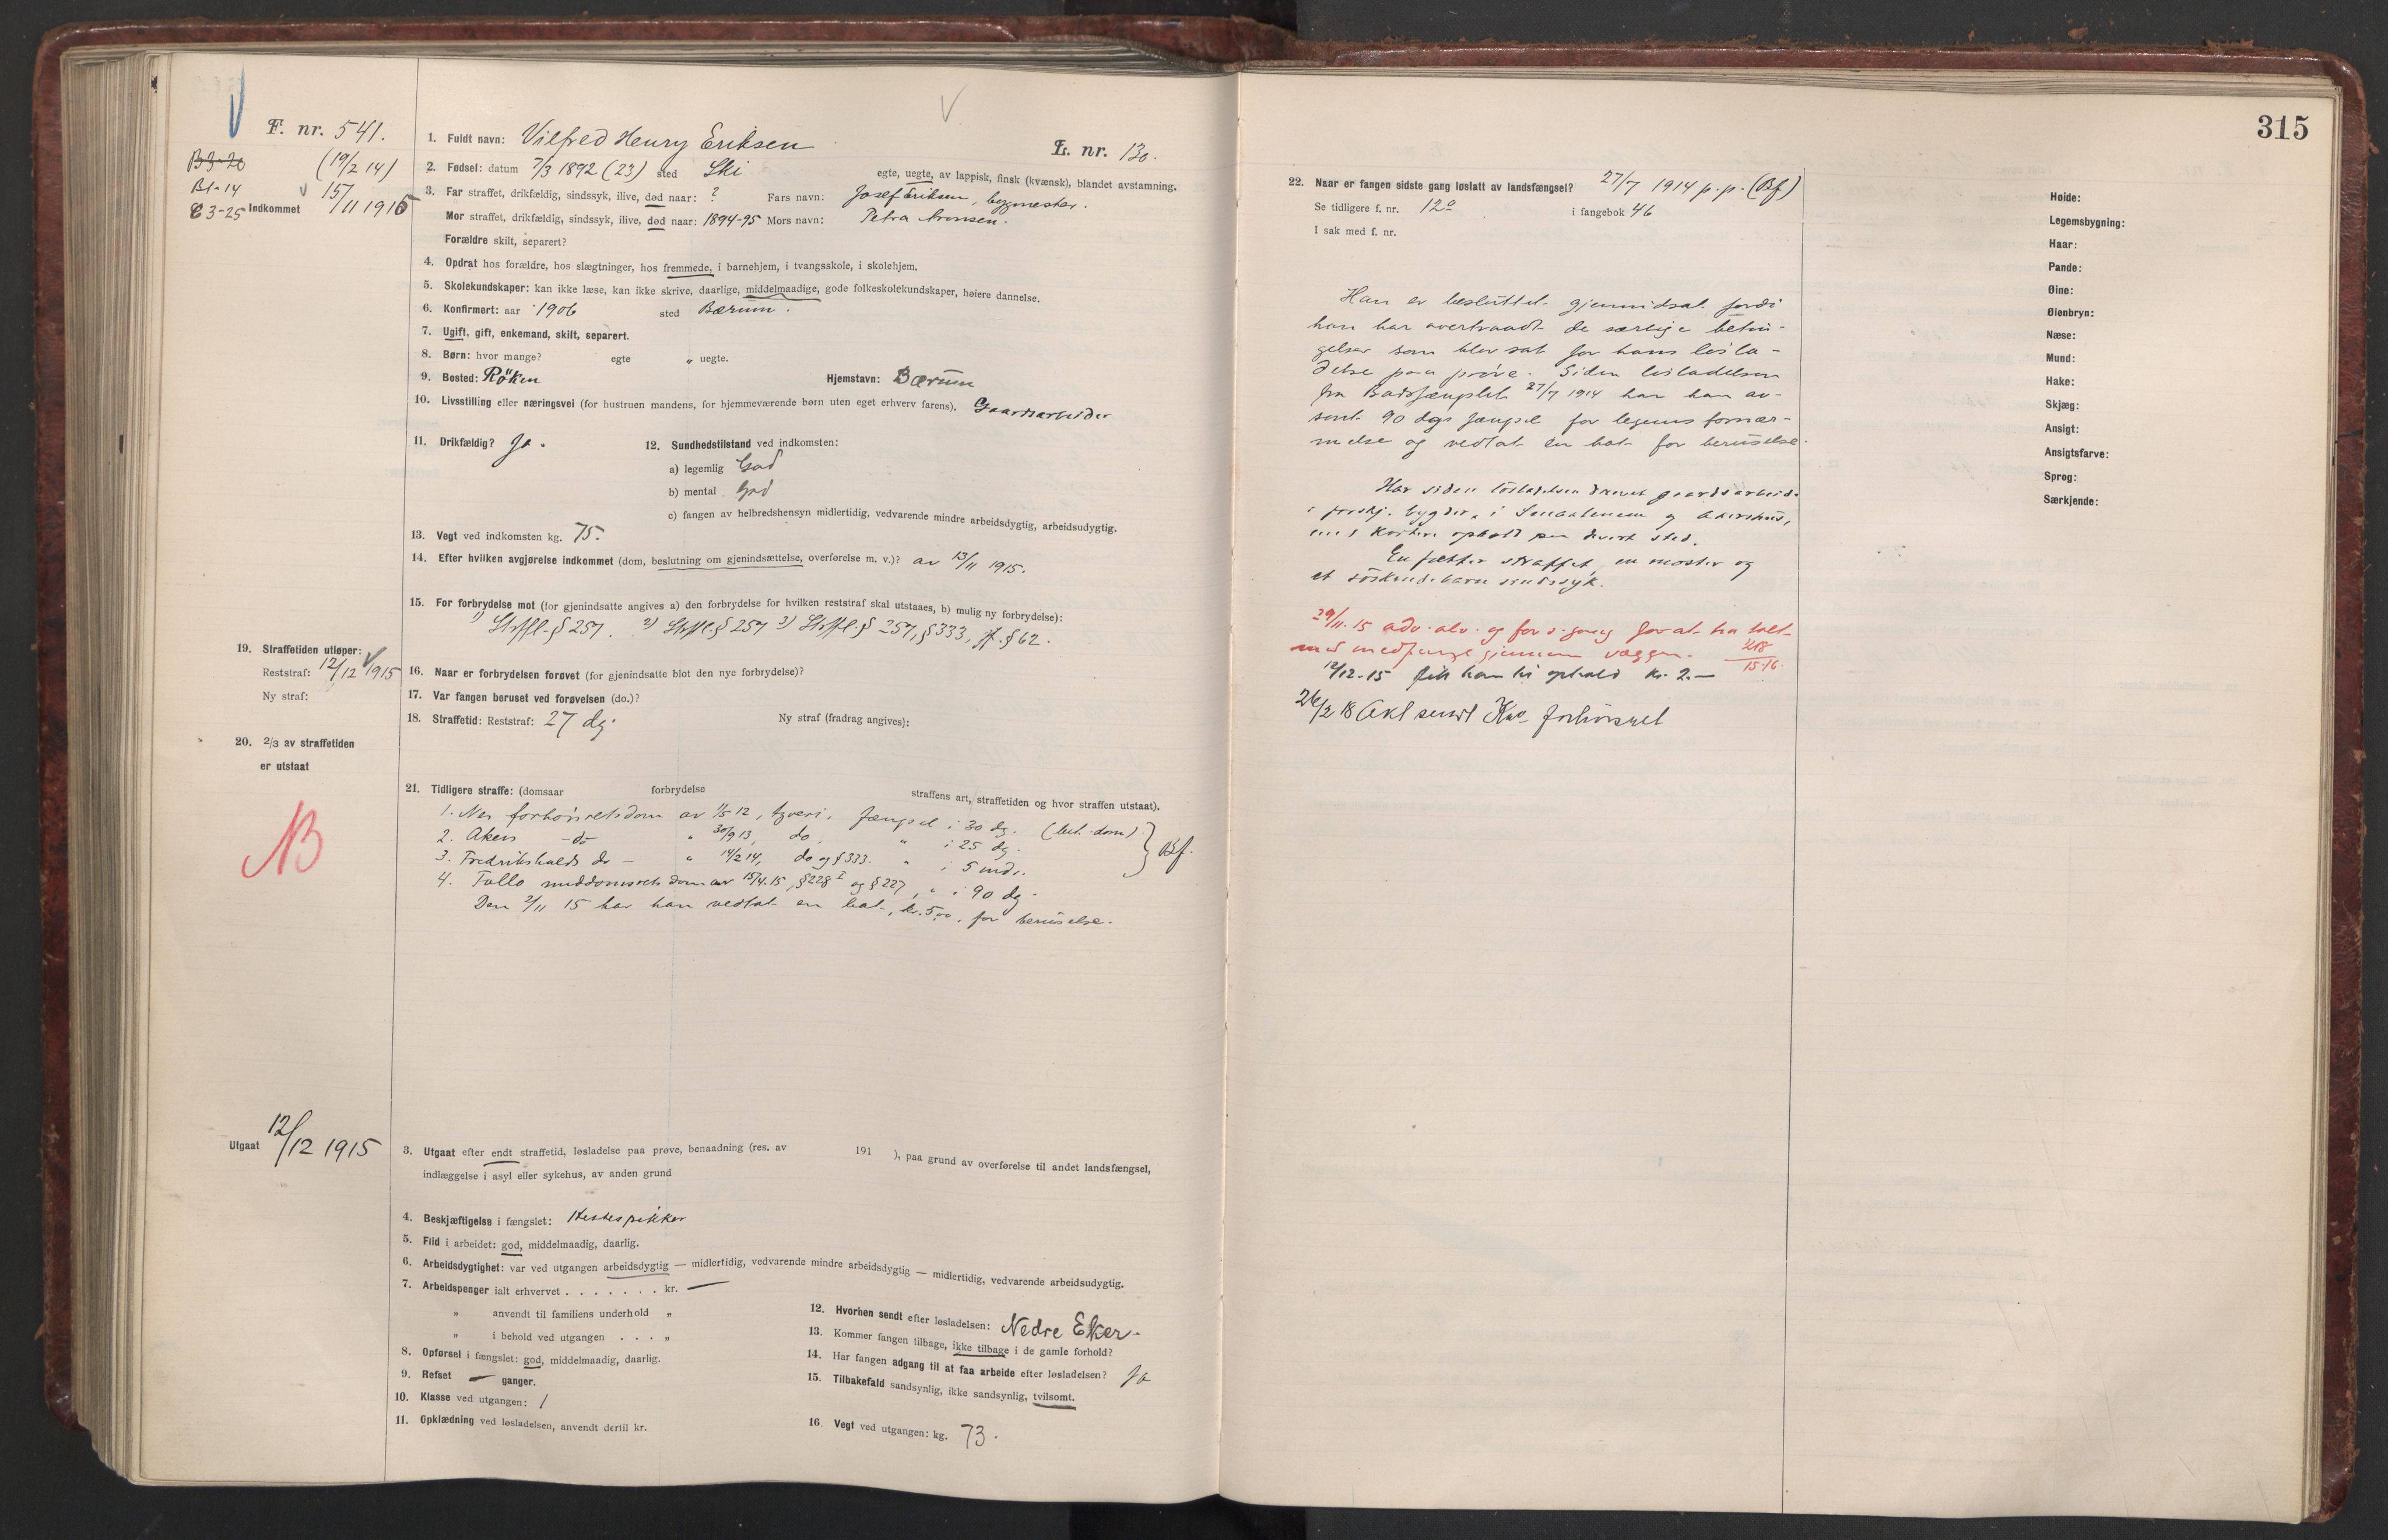 315
F. nr. 541.
B3-20 (19/2 14)
B1-14
C3-25 Indkommet 15/11 1915
L. nr. 130.
1. Fuldt navn: Vilfred Henry Eriksen
2. Fødsel: datum 7/3 1892 (23) sted Ski egte, uegte, av lappisk, finsk (kvænsk), blandet avstamning.
3. Far straffet, drikfældig, sindssyk, ilive, død naar: ? Fars navn: Josef Eriksen, bygmester.
Mor straffet, drikfældig, sindssyk, ilive, død naar: 1894-95 Mors navn: Petra Aronsen.
Forældre skilt, separert?
4. Opdrat hos forældre, hos slægtninger, hos fremmede, i barnehjem, i tvangsskole, i skolehjem.
5. Skolekundskaper: kan ikke læse, kan ikke skrive, daarlige, middelmaadige, gode folkeskolekundskaper, høiere dannelse.
6. Konfirmert: aar 1906 sted Bærum.
7. Ugift, gift, enkemand, skilt, separert.
8. Børn: hvor mange? egte „ uegte.
9. Bosted: Röken Hjemstavn: Bærum
10. Livsstilling eller næringsvei (for hustruen mandens, for hjemmeværende børn uten eget erhverv farens). Gaardsarbeider
11. Drikfældig? Ja. 12. Sundhedstilstand ved indkomsten:
a) legemlig God
b) mental God
c) fangen av helbredshensyn midlertidig, vedvarende mindre arbeidsdygtig, arbeidsudygtig.
13. Vegt ved indkomsten kg. 75.
14. Efter hvilken avgjørelse indkommet (dom, beslutning om gjenindsættelse, overførelse m. v.)? av 13/11 1915.
15. For forbrydelse mot (for gjenindsatte angives a) den forbrydelse for hvilken reststraf skal utstaaes, b) mulig ny forbrydelse):
1) Strffl. § 257. 2) Strffl. § 257 3) Strffl. § 257, § 333, jf. § 62.
19. Straffetiden utløper:
Reststraf: 12/12 1915
Ny straf:
16. Naar er forbrydelsen forøvet (for gjenindsatte blot den nye forbrydelse)?
17. Var fangen beruset ved forøvelsen (do.)?
18. Straffetid: Reststraf: 27 dg. Ny straf (fradrag angives):
20. 2/3 av straffetiden
er utstaat
NB
21. Tidligere straffe: (domsaar forbrydelse straffens art, straffetiden og hvor straffen utstaat).
1. Nes forhörsretsdom av 1/5 12, tyveri, fængsel i 30 dg. (bet. dom)
2. Akers -do- „ 30/9 13, do, „ i 25 dg.
3. Fredrikshalds do - „ 14/2 14, do og § 333. „ i 5 mdr. Bf.
4. Follo meddomsrets dom av 15/4.15, § 228 I og § 227, „ i 90 dg.
Den 2/11 15 har han vedtat en bot, kr. 5,00, for beruselse.
Utgaat 12/12 1915
3. Utgaat efter endt straffetid, løsladelse paa prøve, benaadning (res. av 191 ), paa grund av overførelse til andet landsfængsel,
indlæggelse i asyl eller sykehus, av anden grund
4. Beskjæftigelse i fængslet:
5. Flid i arbeidet: god, middelmaadig, daarlig.
6. Arbeidsdygtighet: var ved utgangen arbeidsdygtig — midlertidig, vedvarende mindre arbeidsdygtig — midlertidig, vedvarende arbeidsudygtig.
7. Arbeidspenger ialt erhvervet . . . . . . . kr. —
„ anvendt til familiens underhold „
„ i behold ved utgangen . . . „
8. Opførsel i fængslet: god, middelmaadig, daarlig.
9. Refset — ganger.
10. Klasse ved utgangen: 1
11. Opklædning ved løsladelsen, anvendt dertil kr.
12. Hvorhen sendt efter løsladelsen: Nedre Eker.
13. Kommer fangen tilbage, ikke tilbage i de gamle forhold?
14. Har fangen adgang til at faa arbeide efter løsladelsen? Ja
15. Tilbakefald sandsynlig, ikke sandsynlig, tvilsomt.
16. Vegt ved utgangen: kg. 73.
22. Naar er fangen sidste gang løslatt av landsfængsel? 27/7 1914 p.p. (Bf)
Se tidligere f. nr. 120 i fangebok 46
I sak med f. nr.
Han er besluttet gjenindsat fordi
han har overtraadt de særlige betin-
gelser som blev sat for hans løsla-
delse paa prøve. Siden løsladelsen
fra Bodsfængslet 27/7 1914 har han av-
sonet 90 dgs fængsel for legemsfornær-
melse og vedtat en bot for beruselse.
Har siden löslatelsen drevet gaardsarbeide
i forskj. bygder, i Smaalenene og Akershus,
med kortere ophold paa hvert sted.
En fætter straffet, en moster og
et söskendebarn sindssyk.
29/11. 15 adv. alv. og for s. gang for at ha talt
med medfange gjennem væggen. 218
15-16.
12/12-15 fik han til ophold kr. 2.—
26/2 18 Akt sendt Kra forhörsret
Høide:
Legemsbygning:
Haar:
Pande:
Øine:
Øienbryn:
Næse:
Mund:
Hake:
Skjæg:
Ansigt:
Ansigtsfarve:
Sprog:
Særkjende: